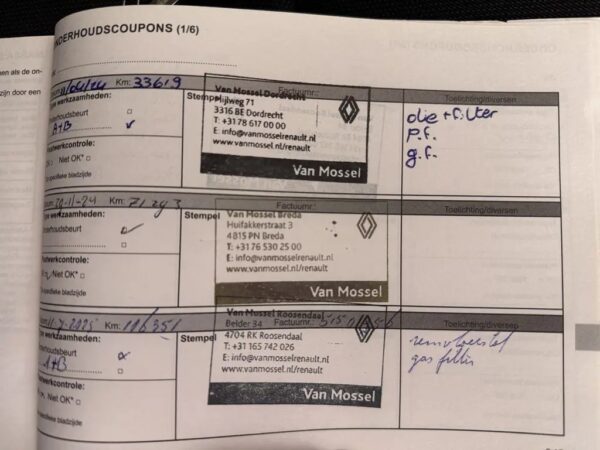 NDERHOUDSCOUPONS (1/6)
en als de on-
zijn door een
Km: 33619
Factuurnr.:
Toelichting/diversen
werkzaamheden:
Stempel
Van Mossel Dordrecht
Mijlweg 71
3316 BE Dordrecht
T: +31 78 617 00 00
E: info@vanmosselrenault.nl
www.vanmosselrenault.nl/renault
Van Mossel
derhoudsbeurt
A+B
olie + filter
p.f.
g.f.
twerkcontrole:
Niet OK*
specifieke bladzijde
-11-24 Km:
Factuurnr.:
Toelichting/diversen
werkzaamheden:
Stempel
Van Mossel Breda
Huifakkerstraat 3
4815 PN Breda
T: +31 76 530 25 00
E: info@vanmosselrenault.nl
www.vanmossel.nl/renault
Van Mossel
derhoudsbeurt
twerkcontrole:
Niet OK*
specifieke bladzijde
11-7-2025 Km: 116351
Factuurnr.:
Toelichting/diversen
werkzaamheden:
Stempel
Van Mossel Roosendaal
Belder 34
4704 RK Roosendaal
T: +31 165 742 026
E: info@vanmosselrenault.nl
www.vanmossel.nl/renault
Van Mossel
houdsbeurt
A+B
remvloeistof
gas filter
werkcontrole:
Niet OK*
specifieke bladzijde